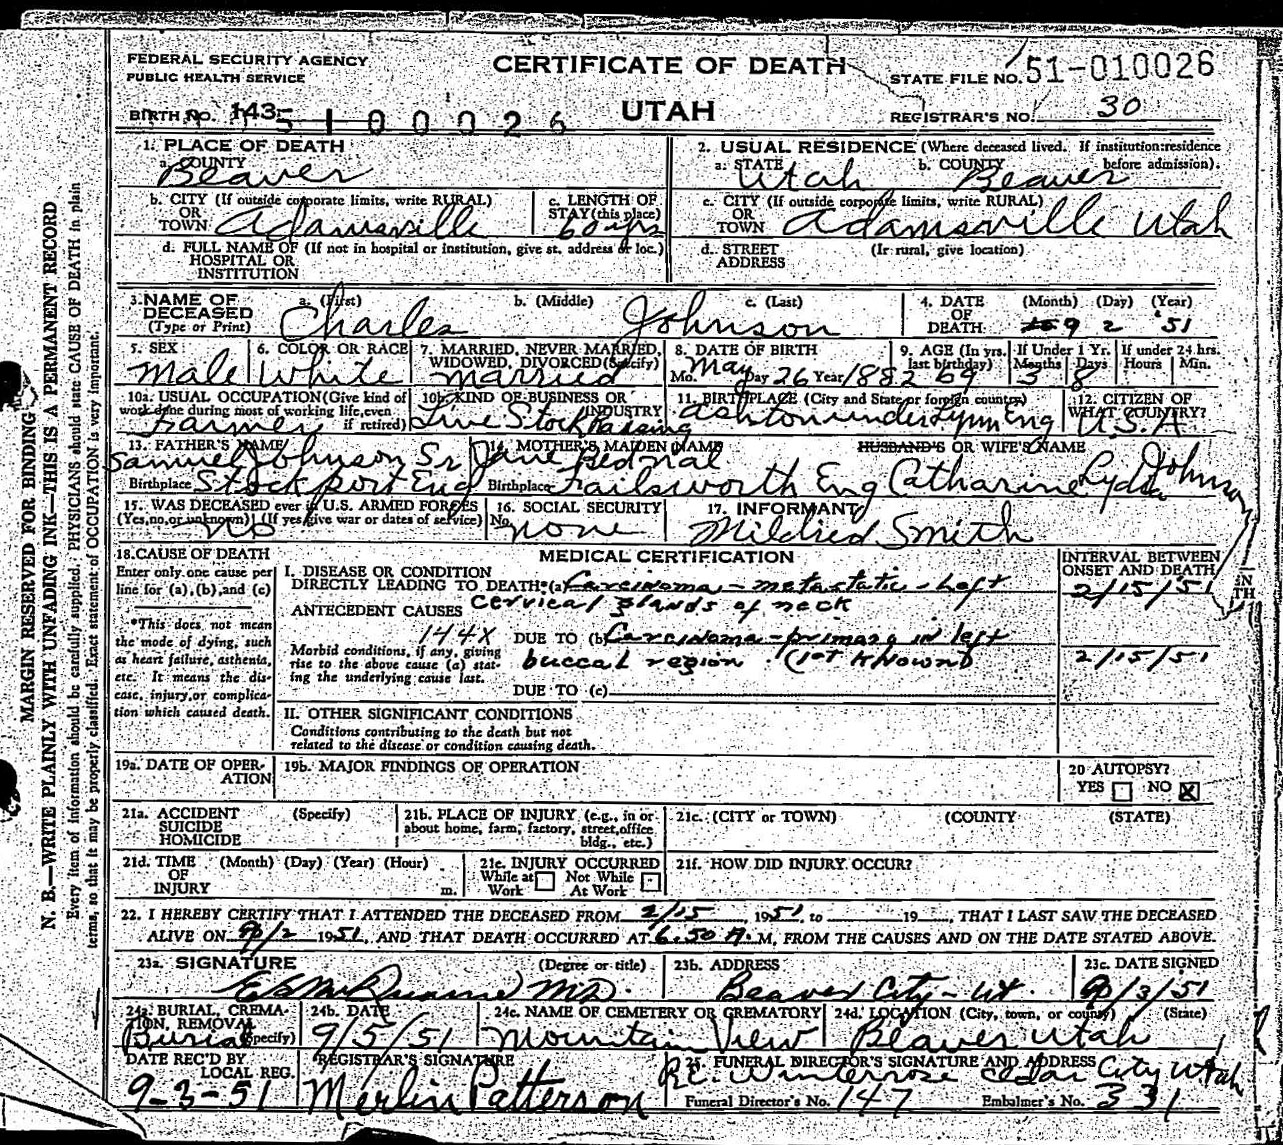 FEDERAL SECURITY AGENCY
PUBLIC HEALTH SERVICE
CERTIFICATE OF DEATH
STATE FILE NO. 51-010026
BIRTH NO. 143- 5 1 0 0 0 2 6
UTAH
REGISTRAR'S NO. 30
1. PLACE OF DEATH
a. COUNTY Beaver
2. USUAL RESIDENCE (Where deceased lived. If institution: residence before admission).
a. STATE Utah b. COUNTY Beaver
b. CITY (If outside corporate limits, write RURAL) OR TOWN Adamsville
c. LENGTH OF STAY (this place) 60 yrs
c. CITY (If outside corporate limits, write RURAL) OR TOWN Adamsville Utah
d. FULL NAME OF (If not in hospital or institution, give st. address or loc.) HOSPITAL OR INSTITUTION
d. STREET ADDRESS (If rural, give location)
3. NAME OF DECEASED (Type or Print) a. (First) b. (Middle) c. (Last)
Charles Johnson
4. DATE OF DEATH (Month) (Day) (Year)
9 2 '51
5. SEX Male
6. COLOR OR RACE White
7. MARRIED, NEVER MARRIED, WIDOWED, DIVORCED (Specify) married
8. DATE OF BIRTH Mo. May Day 26 Year 1882
9. AGE (In yrs. last birthday) 69
If Under 1 Yr. Months 3 Days 8
If under 24 hrs. Hours Min.
10a. USUAL OCCUPATION (Give kind of work done during most of working life, even if retired) Farmer
10b. KIND OF BUSINESS OR INDUSTRY Live Stock Raising
11. BIRTHPLACE (City and State or foreign country) Ashtonunder Lynn Eng
12. CITIZEN OF WHAT COUNTRY? U.S.A
13. FATHER'S NAME Samuel Johnson Sr
Birthplace Stockport Eng
14. MOTHER'S MAIDEN NAME Jane
Birthplace Failsworth Eng
HUSBAND'S OR WIFE'S NAME
Catharine Lydia Johnson
15. WAS DECEASED ever in U.S. ARMED FORCES (Yes, no, or unknown) (If yes, give war or dates of service) no
16. SOCIAL SECURITY No. none
17. INFORMANT Mildred Smith
18. CAUSE OF DEATH
Enter only one cause per line for (a), (b), and (c)
*This does not mean the mode of dying, such as heart failure, asthenia, etc. It means the disease, injury, or complication which caused death.
MEDICAL CERTIFICATION
INTERVAL BETWEEN ONSET AND DEATH
I. DISEASE OR CONDITION DIRECTLY LEADING TO DEATH* (a) Carcinoma - metastatic - Left cervical glands of neck
2/15/51
ANTECEDENT CAUSES
144X
DUE TO (b) Carcinoma - primary in left buccal region (1st known)
2/15/51
Morbid conditions, if any, giving rise to the above cause (a) stating the underlying cause last.
DUE TO (c)
II. OTHER SIGNIFICANT CONDITIONS
Conditions contributing to the death but not related to the disease or condition causing death.
19a. DATE OF OPERATION
19b. MAJOR FINDINGS OF OPERATION
20 AUTOPSY?
YES NO X
21a. ACCIDENT SUICIDE HOMICIDE (Specify)
21b. PLACE OF INJURY (e.g., in or about home, farm, factory, street, office bldg., etc.)
21c. (CITY or TOWN) (COUNTY) (STATE)
21d. TIME OF INJURY (Month) (Day) (Year) (Hour) m.
21e. INJURY OCCURRED While at Work Not While At Work
21f. HOW DID INJURY OCCUR?
22. I HEREBY CERTIFY THAT I ATTENDED THE DECEASED FROM 2/15, 1951, to 19, THAT I LAST SAW THE DECEASED
ALIVE ON 9/2 1951, AND THAT DEATH OCCURRED AT 6:50 A. M, FROM THE CAUSES AND ON THE DATE STATED ABOVE.
23a. SIGNATURE (Degree or title) MD.
23b. ADDRESS Beaver City - Ut.
23c. DATE SIGNED 9/3/51
24a. BURIAL, CREMATION, REMOVAL (Specify) Burial
24b. DATE 9/5/51
24c. NAME OF CEMETERY OR CREMATORY Mountain View
24d. LOCATION (City, town, or county) (State) Beaver Utah
DATE REC'D BY LOCAL REG. 9-3-51
REGISTRAR'S SIGNATURE Merlin Patterson
25. FUNERAL DIRECTOR'S SIGNATURE AND ADDRESS
R.C. Winterrose Cedar City Utah
Funeral Director's No. 147 Embalmer's No. 331
MARGIN RESERVED FOR BINDING
N. B.—WRITE PLAINLY WITH UNFADING INK—THIS IS A PERMANENT RECORD
Every item of information should be carefully supplied. PHYSICIANS should state CAUSE OF DEATH in plain
terms, so that it may be properly classified. Exact statement of OCCUPATION is very important.